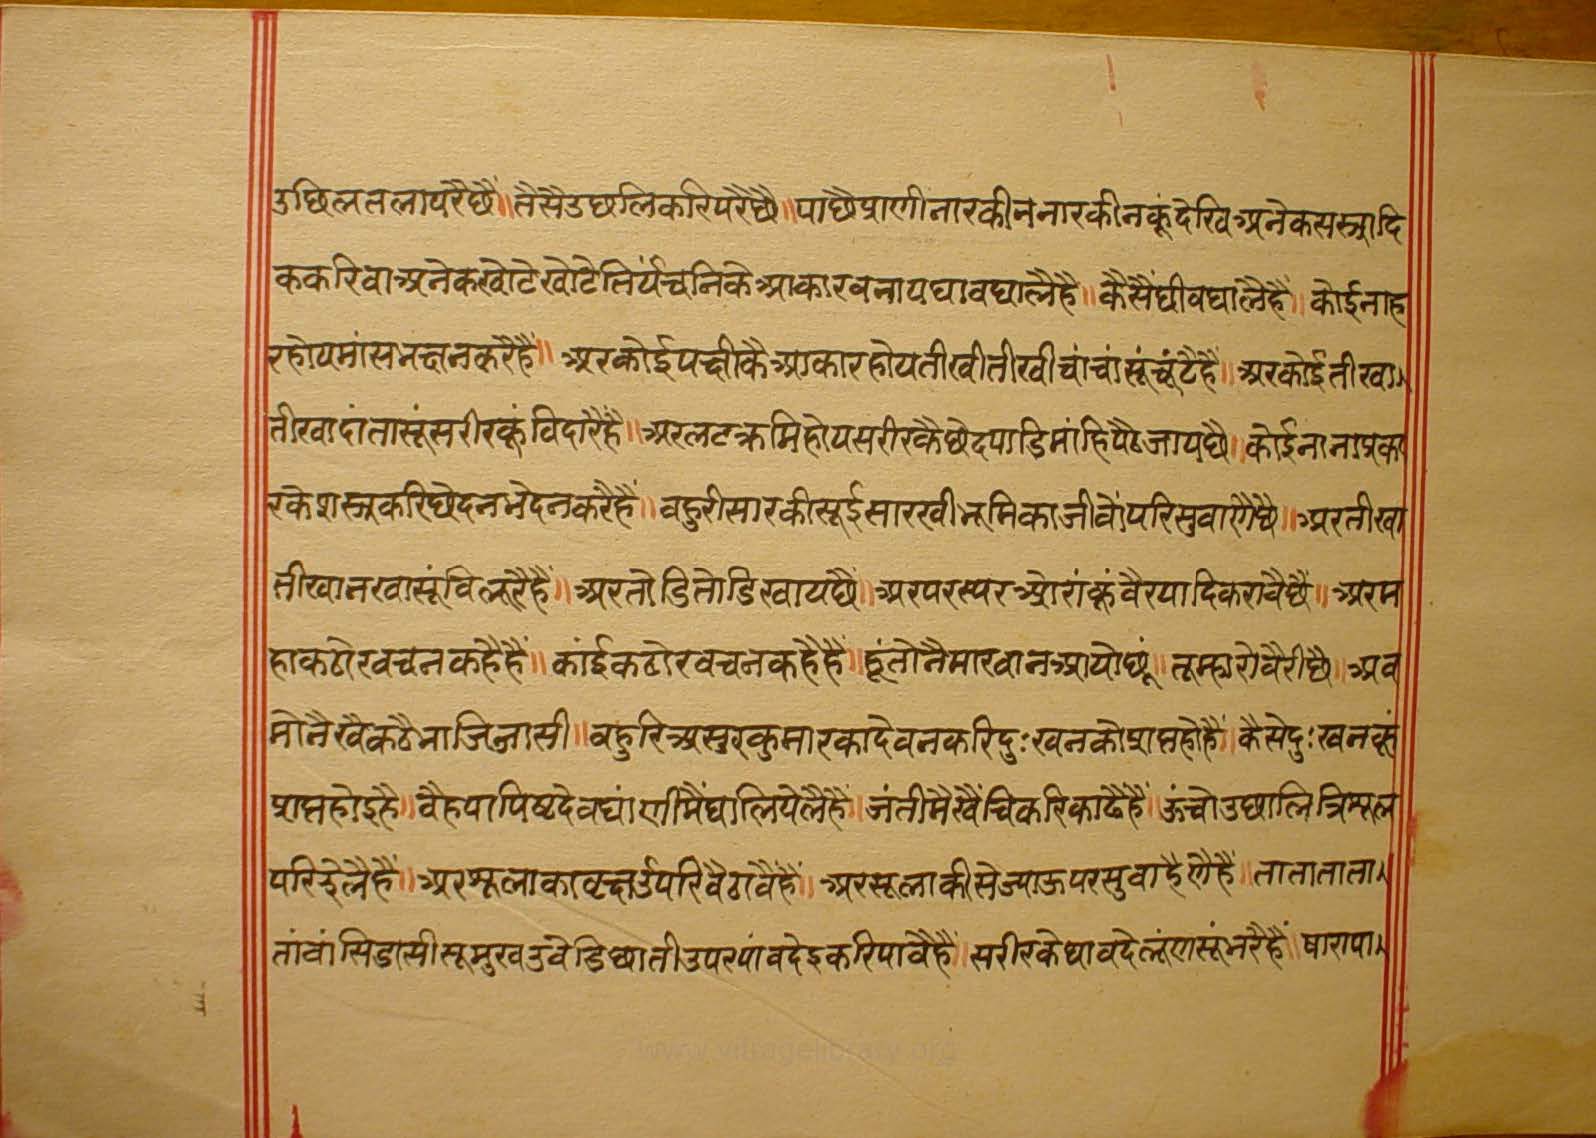 उछिलतलापरैछैं॥तैसैउछलिकरिपरैछै॥पाछैप्राणीनारकीननारकीनकूंदेखिअनेकसस्त्रादि
ककरिवाअनेकखोटेखोटेतिर्यंचनिकेआकारवनायघावघालैहै॥कैसैंघीवघालैहैं॥कोईनाह
रहोयमांसभक्षनकरैहैं॥अरकोईपक्षीकैआकारहोयतीखीतीखीचांचांसूंचूंटैहैं॥अरकोईतीखा
तीखादांतासूंसरीरकूंविदारैहैं॥अरलटक्रमिहोयसरीरकैछेदपाडिमांहिपैठजायछै॥कोईनानाप्रका
रकेशस्त्रकरिछेदनभेदनकरैहैं॥वहुरीसारकीसूईसारखीभूमिकाजीवोंपरिसुवाणैछै॥अरतीखा
तीखानखासूंविलूरैहैं॥अरतोडितोडिखायछैं॥अरपरस्परओरांकूंवैरयादिकरावैछैं॥अरम
हाकठोरवचनकहैहैं॥कांईकठोरवचनकहैहैं॥हूंतोनैमारवानआयोछूं॥तूम्हारोवैरीछै॥अव
मोनैरवैकठैभाजिजासी॥वहुरिअसुरकुमारकादेवनकरिदुःखनकोप्राप्तहोहैं॥कैसेदुःखनकूं
प्राप्तहोइहै॥वैहपापिष्टदेवघांणीमैंघालिपेलैहैं॥जंतीमैखैंचिकरिकाढैहैं॥ऊंचोउछालित्रिशूल
परिझेलैहैं॥अरशूलाकावृक्षउपरिवैठावैंहैं॥अरसूलाकीसेज्याऊपरसुवाहैणैहैं॥ताताताता
तांवांसिडासीसूमुखउवेडिछातीउपरपांवदेइकरिपावैहैं॥सरीरकेघावदेलूंणसूंभरैहैं॥षारापा
www.vitragelibrary.org